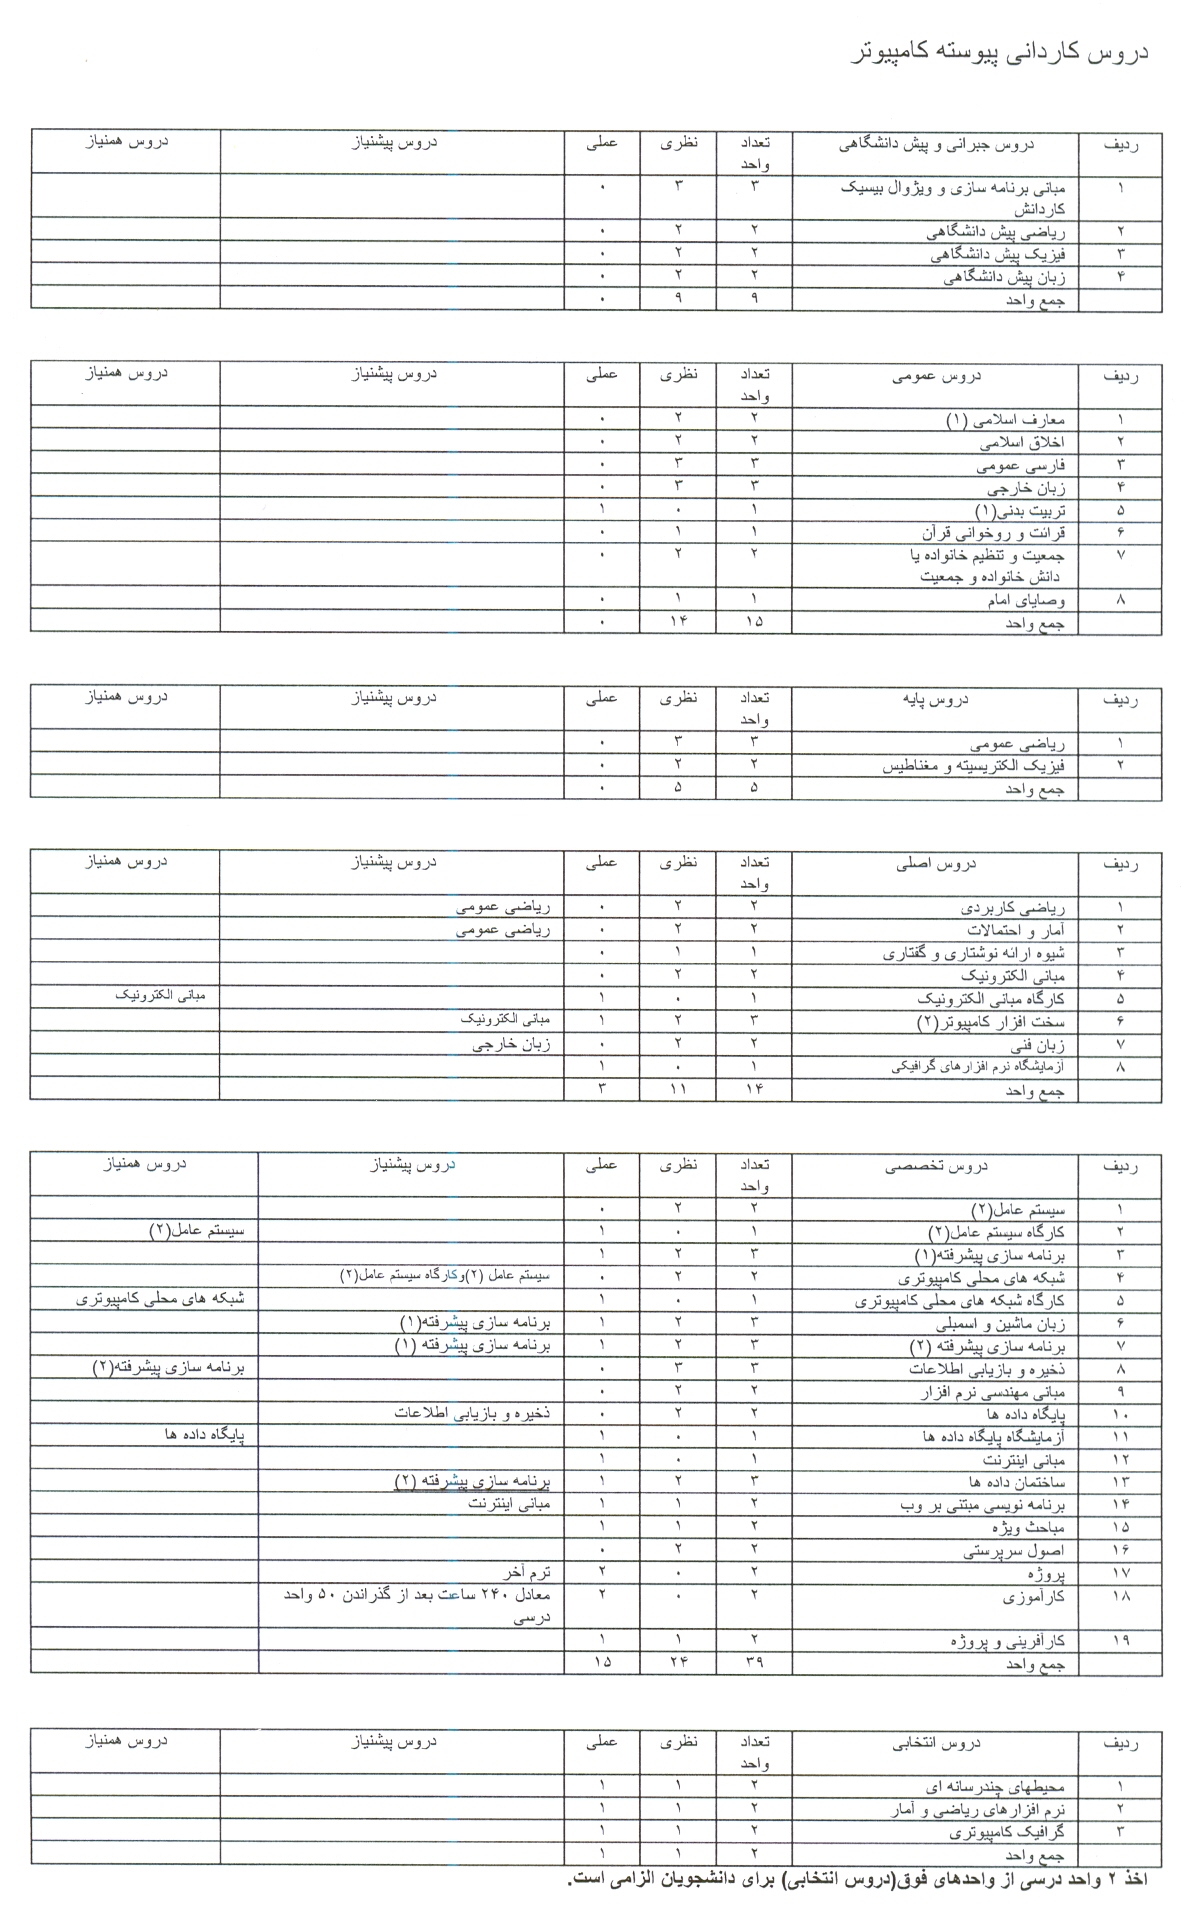 دروس کاردانی پیوسته کامپیوتر
ردیف دروس جبرانی و پیش دانشگاهی تعداد واحد نظری عملی دروس پیشنیاز دروس همنیاز
۱ مبانی برنامه سازی و ویژوال بیسیک کاردانش ۳ ۳ ۰
۲ ریاضی پیش دانشگاهی ۲ ۲ ۰
۳ فیزیک پیش دانشگاهی ۲ ۲ ۰
۴ زبان پیش دانشگاهی ۲ ۲ ۰
جمع واحد ۹ ۹ ۰
ردیف دروس عمومی تعداد واحد نظری عملی دروس پیشنیاز دروس همنیاز
۱ معارف اسلامی (۱) ۲ ۲ ۰
۲ اخلاق اسلامی ۲ ۲ ۰
۳ فارسی عمومی ۳ ۳ ۰
۴ زبان خارجی ۳ ۳ ۰
۵ تربیت بدنی(۱) ۱ ۰ ۱
۶ قرائت و روخوانی قرآن ۱ ۱ ۰
۷ جمعیت و تنظیم خانواده یا دانش خانواده و جمعیت ۲ ۲ ۰
۸ وصایای امام ۱ ۱ ۰
جمع واحد ۱۵ ۱۴ ۰
ردیف دروس پایه تعداد واحد نظری عملی دروس پیشنیاز دروس همنیاز
۱ ریاضی عمومی ۳ ۳ ۰
۲ فیزیک الکتریسیته و مغناطیس ۲ ۲ ۰
جمع واحد ۵ ۵ ۰
ردیف دروس اصلی تعداد واحد نظری عملی دروس پیشنیاز دروس همنیاز
۱ ریاضی کاربردی ۲ ۲ ۰ ریاضی عمومی
۲ آمار و احتمالات ۲ ۲ ۰ ریاضی عمومی
۳ شیوه ارائه نوشتاری و گفتاری ۱ ۱ ۰
۴ مبانی الکترونیک ۲ ۲ ۰
۵ کارگاه مبانی الکترونیک ۱ ۰ ۱ مبانی الکترونیک
۶ سخت افزار کامپیوتر(۲) ۳ ۲ ۱ مبانی الکترونیک
۷ زبان فنی ۲ ۲ ۰ زبان خارجی
۸ آزمایشگاه نرم افزارهای گرافیکی ۱ ۰ ۱
جمع واحد ۱۴ ۱۱ ۳
ردیف دروس تخصصی تعداد واحد نظری عملی دروس پیشنیاز دروس همنیاز
۱ سیستم عامل(۲) ۲ ۲ ۰
۲ کارگاه سیستم عامل(۲) ۱ ۰ ۱ سیستم عامل(۲)
۳ برنامه سازی پیشرفته(۱) ۳ ۲ ۱
۴ شبکه های محلی کامپیوتری ۲ ۲ ۰ سیستم عامل (۲)وکارگاه سیستم عامل(۲)
۵ کارگاه شبکه های محلی کامپیوتری ۱ ۰ ۱ شبکه های محلی کامپیوتری
۶ زبان ماشین و اسمبلی ۳ ۲ ۱ برنامه سازی پیشرفته(۱)
۷ برنامه سازی پیشرفته (۲) ۳ ۲ ۱ برنامه سازی پیشرفته (۱)
۸ ذخیره و بازیابی اطلاعات ۳ ۳ ۰ برنامه سازی پیشرفته(۲)
۹ مبانی مهندسی نرم افزار ۲ ۲ ۰
۱۰ پایگاه داده ها ۲ ۲ ۰ ذخیره و بازیابی اطلاعات
۱۱ آزمایشگاه پایگاه داده ها ۱ ۰ ۱ پایگاه داده ها
۱۲ مبانی اینترنت ۱ ۰ ۱
۱۳ ساختمان داده ها ۳ ۲ ۱ برنامه سازی پیشرفته (۲)
۱۴ برنامه نویسی مبتنی بر وب ۲ ۱ ۱ مبانی اینترنت
۱۵ مباحث ویژه ۲ ۱ ۱
۱۶ اصول سرپرستی ۲ ۲ ۰
۱۷ پروژه ۲ ۰ ۲ ترم آخر
۱۸ کارآموزی ۲ ۰ ۲ معادل ۲۴۰ ساعت بعد از گذراندن ۵۰ واحد درسی
۱۹ کارآفرینی و پروژه ۲ ۱ ۱
جمع واحد ۳۹ ۲۴ ۱۵
ردیف دروس انتخابی تعداد واحد نظری عملی دروس پیشنیاز دروس همنیاز
۱ محیطهای چندرسانه ای ۲ ۱ ۱
۲ نرم افزارهای ریاضی و آمار ۲ ۱ ۱
۳ گرافیک کامپیوتری ۲ ۱ ۱
جمع واحد ۲ ۱ ۱
اخذ ۲ واحد درسی از واحدهای فوق(دروس انتخابی) برای دانشجویان الزامی است.